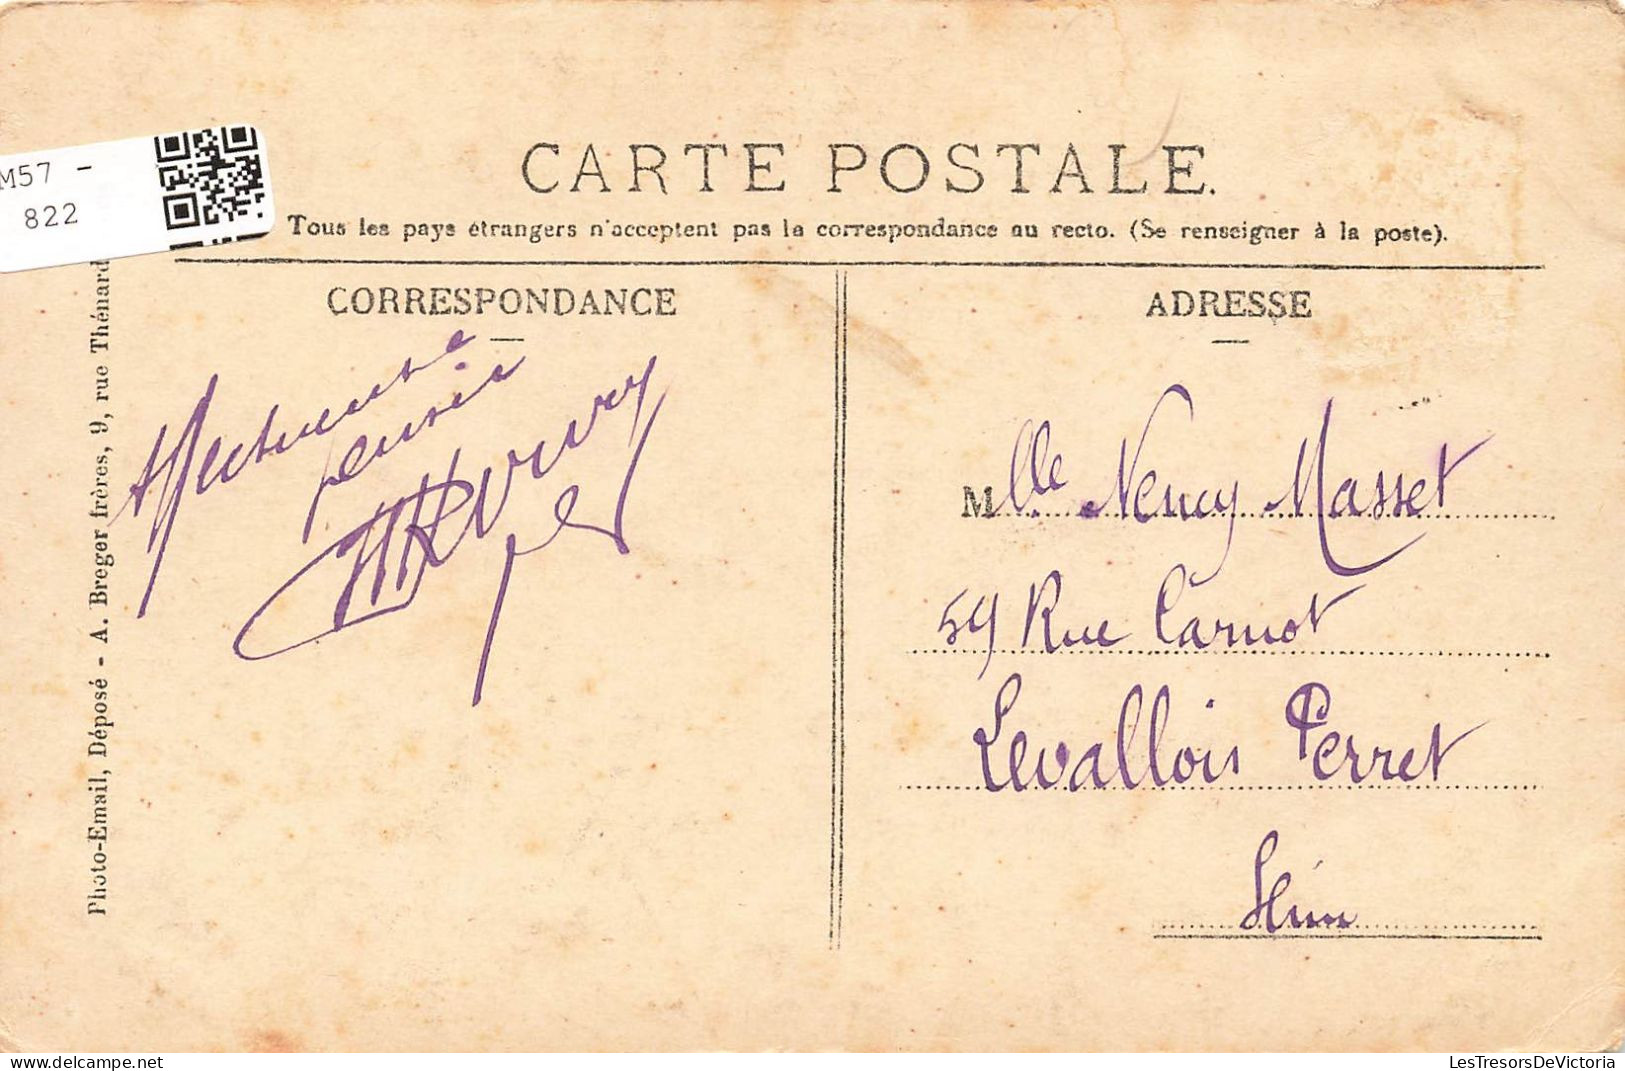 M57 -
822
CARTE POSTALE.
Tous les pays étrangers n'acceptent pas la correspondance au recto. (Se renseigner à la poste).
CORRESPONDANCE
Affectueuse
pensée
ADRESSE
Mlle Nency Masset
59 Rue Carnot
Levallois Perret
Seine
Photo-Email, Déposé - A. Breger frères, 9, rue Thénard
LesTresorsDeVictoria